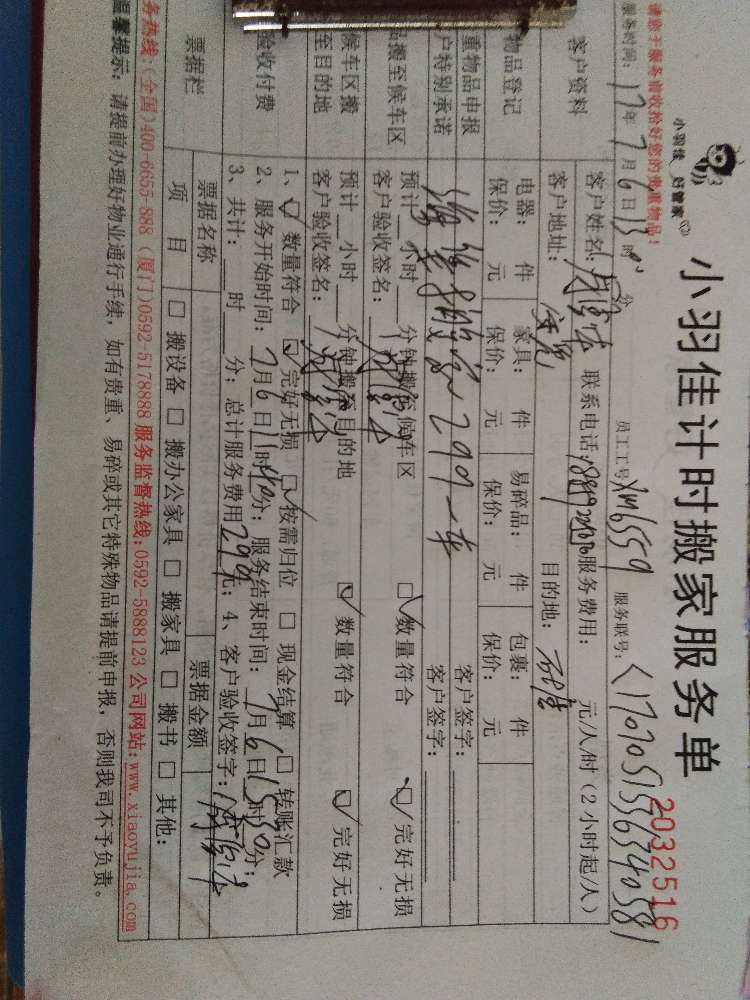 小羽佳 好管家
小羽佳计时搬家服务单
2032516
请您于服务前收拾好您的贵重物品!
员工工号 XM6559 服务联号:
服务时间: 17年7月6日13时 分
客户资料 客户姓名: 联系电话: 服务费用: 元/人/时(2小时起/人)
客户地址: 目的地:
物品登记 电器: 件 家具: 件 易碎品: 件 包裹: 件
保价: 元 保价: 元 保价: 元 保价: 元
重物品申报 搬家299一车 客户签字:
户特别承诺 客户签字:
品搬至候车区 预计 小时 分钟搬至候车区 数量符合 完好无损
客户验收签名:
候车区搬 预计 小时 分钟搬至目的地 数量符合 完好无损
至目的地 客户验收签名:
验收付费 1、 数量符合 完好无损 按需归位 现金结算 转账汇款
2、服务开始时间: 7月6日11时40分; 服务结束时间: 7月6日15时30分;
3、共计: 时 分; 总计服务费用299元; 4、客户验收签字:
票据栏 票据名称 票据金额
项目 搬设备 搬办公家具 搬家具 搬书 其他:
务热线:(全国)400-6655-888 (厦门)0592-5178888 服务监督热线:0592-5888123 公司网站:www.xiaoyujia.com
温馨提示: 请提前办理好物业通行手续, 如有贵重、易碎或其它特殊物品请提前申报, 否则我司不予负责。